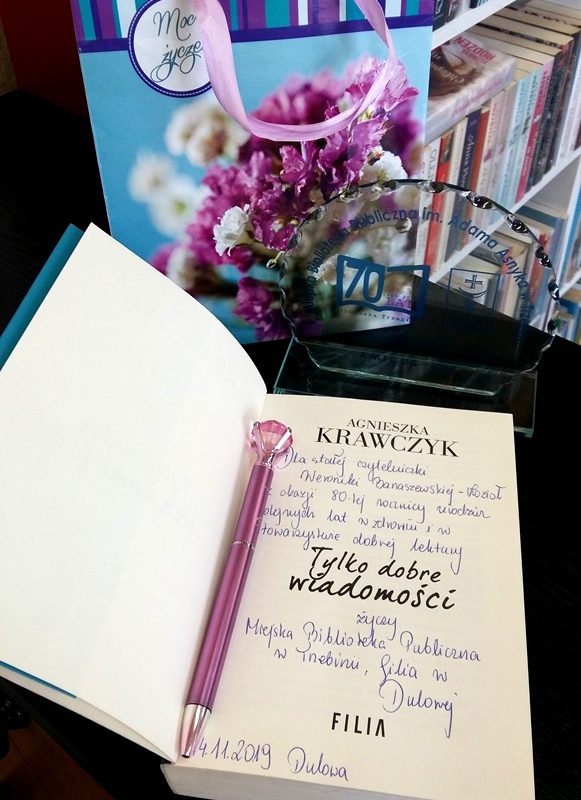 Moc
życze
Biblioteka Publiczna im. Adama Asnyka w
70
LAT
AGNIESZKA
KRAWCZYK
Dla stałej czytelniczki
Weroniki Banaszewskiej - Kozioł
z okazji 80-tej rocznicy urodzin
kolejnych lat w zdrowiu i w
towarzystwie dobrej lektury
Tylko dobre
wiadomości
życzy
Miejska Biblioteka Publiczna
w Trzebini, filia w
Dulowej
FILIA
4.11.2019 Dulowa